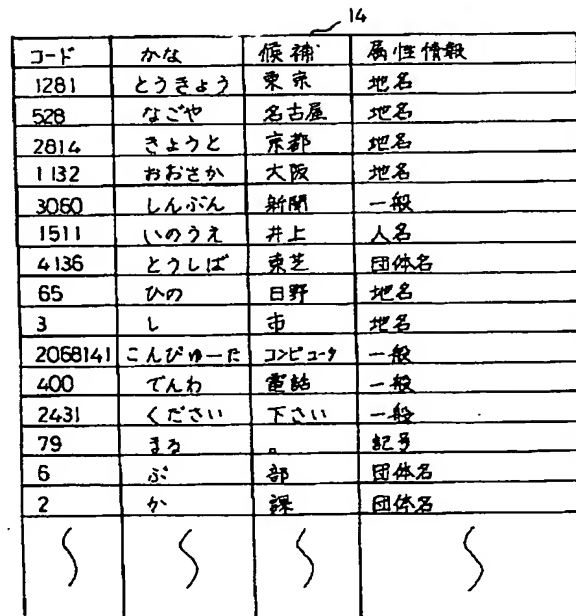 14
コード かな 候補 属性情報
1281 とうきょう 東京 地名
528 なごや 名古屋 地名
2814 きょうと 京都 地名
1132 おおさか 大阪 地名
3060 しんぶん 新聞 一般
1511 いのうえ 井上 人名
4136 とうしば 東芝 団体名
65 ひの 日野 地名
3 し 市 地名
2068141 こんぴゅーた コンピュータ 一般
400 でんわ 電話 一般
2431 ください 下さい 一般
79 まる 。 記号
6 ぶ 部 団体名
2 か 課 団体名